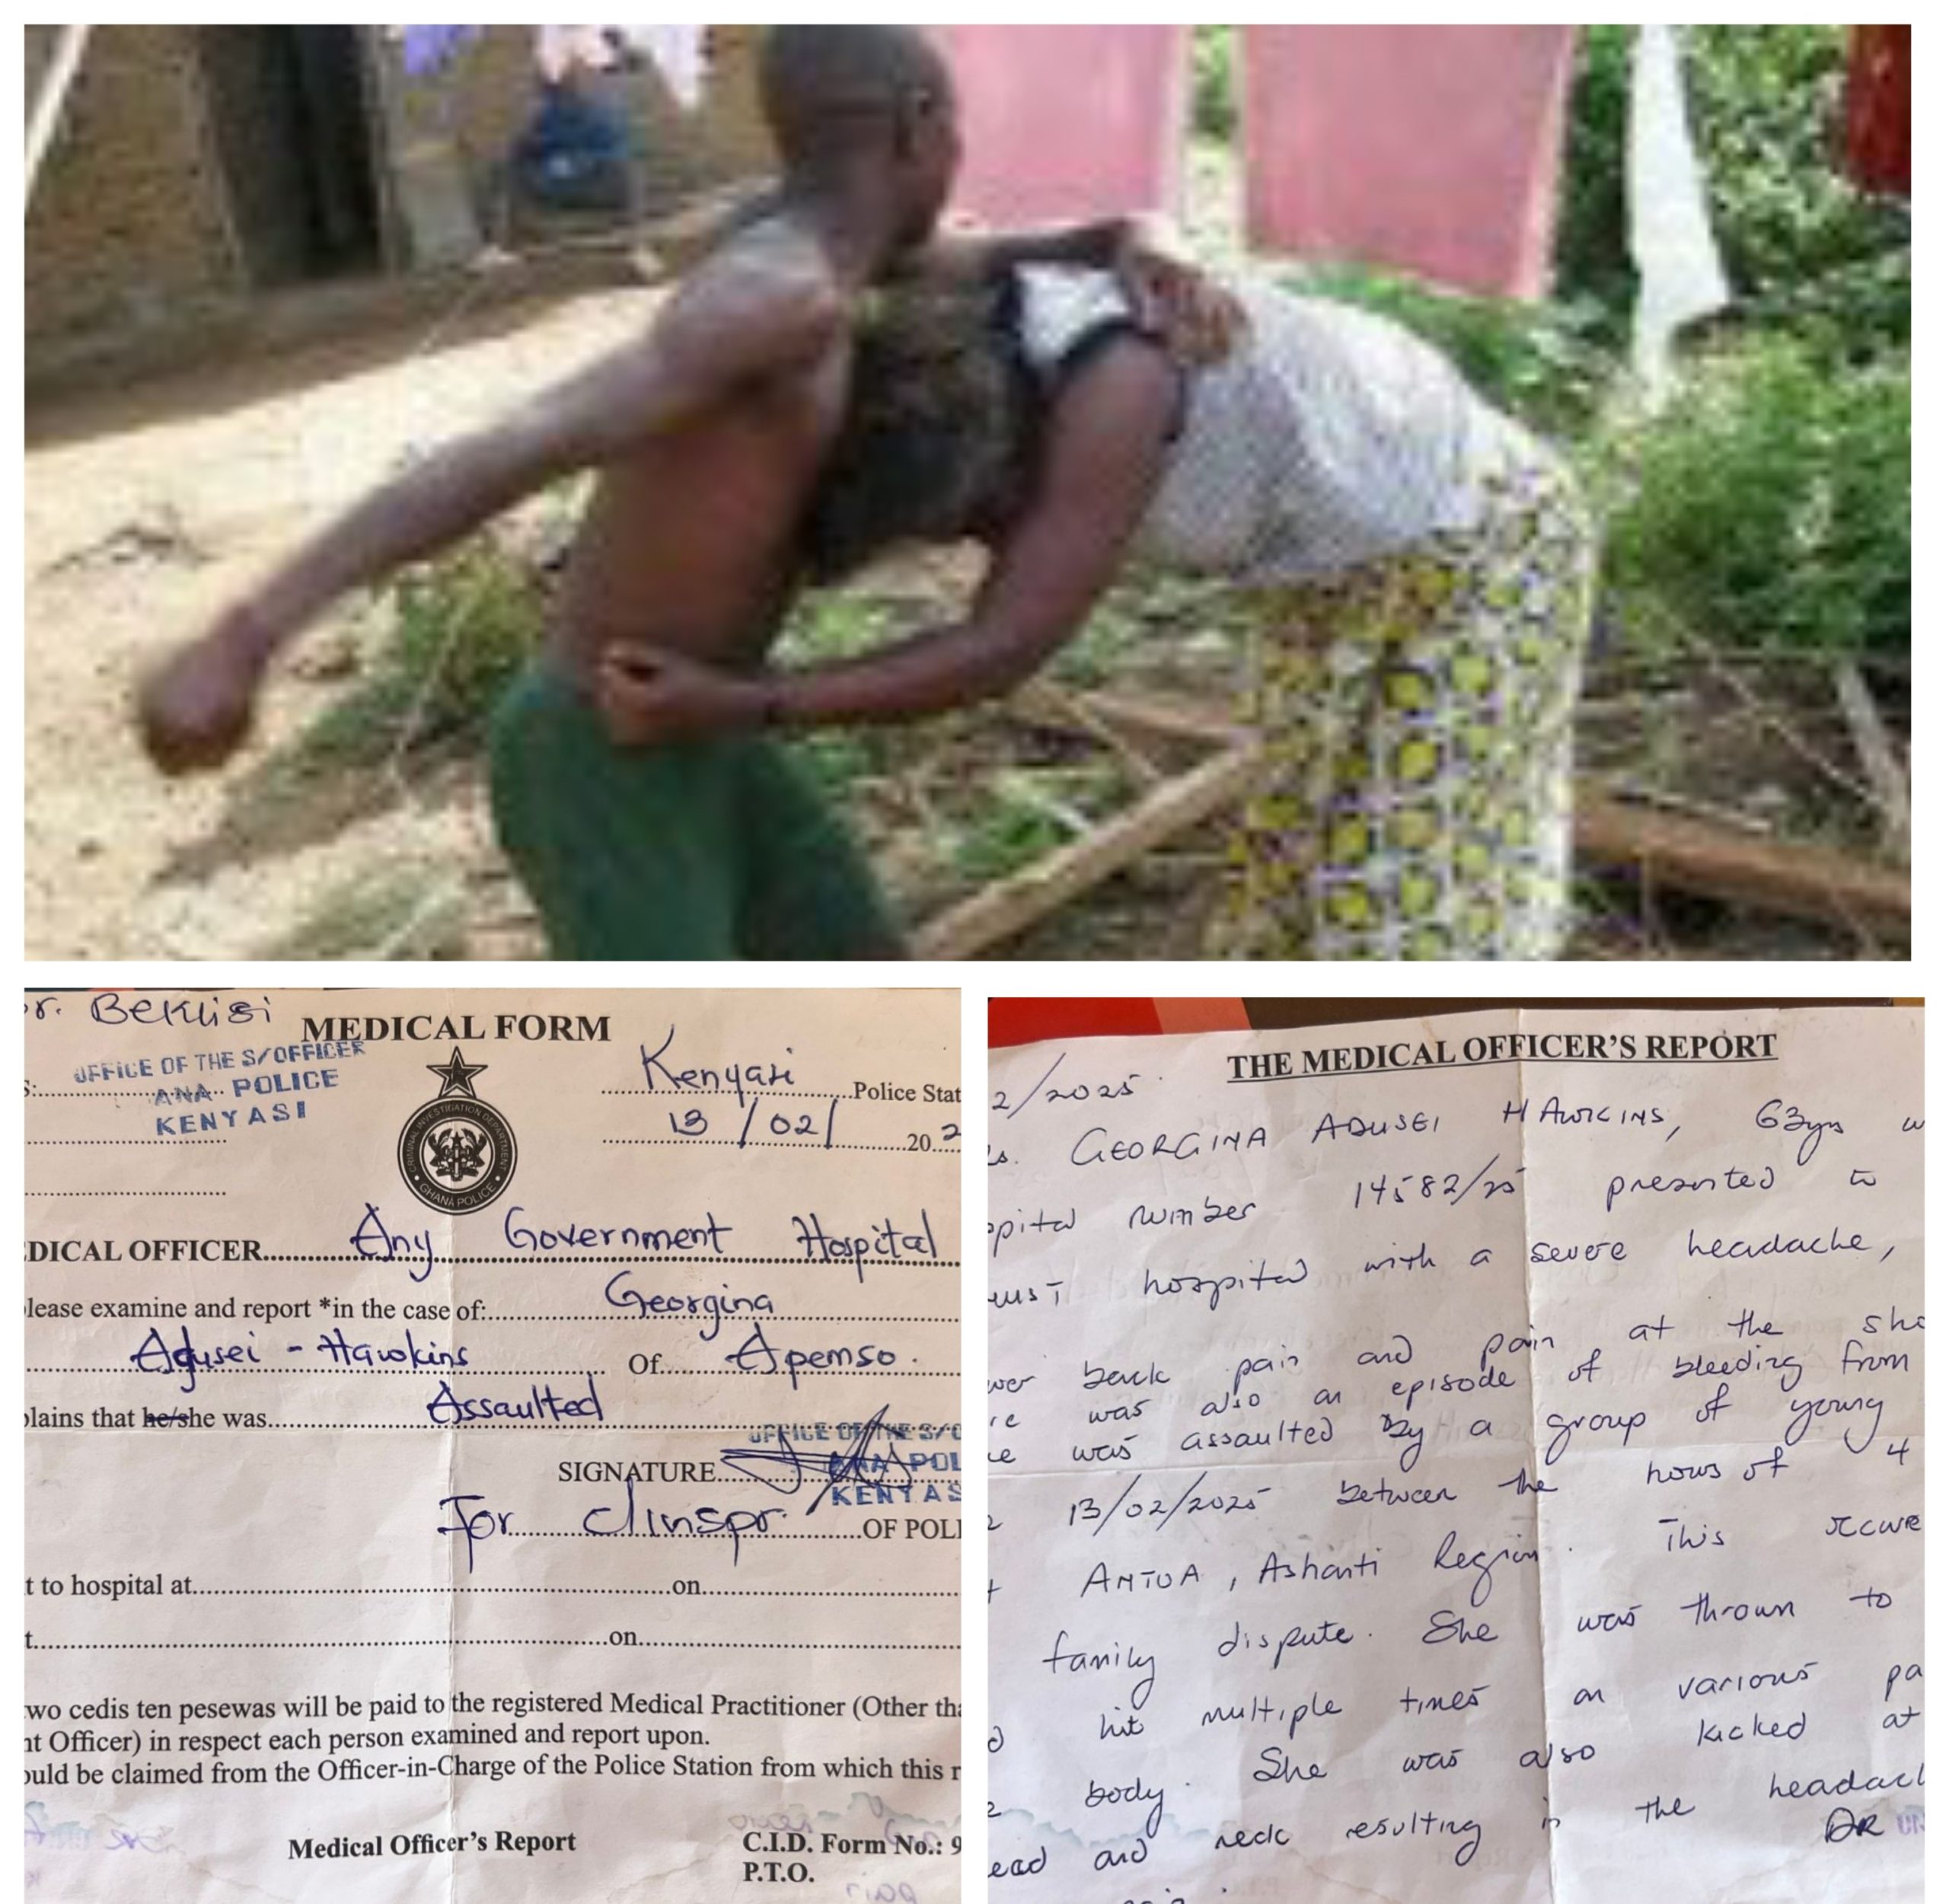 Dr. Beklisi
MEDICAL FORM
OFFICE OF THE S/OFFICER
ANA POLICE
KENYASI
Kenyasi Police Stat
13/02/ 20.2
CRIMINAL INVESTIGATION DEPARTMENT
GHANA POLICE
DICAL OFFICER Any Government Hospital
lease examine and report *in the case of: Georgina
Adusei - Hawkins Of Apemso.
plains that he/she was Assaulted
OFFICE OF THE S/O
ANA POL
KENYAS
SIGNATURE
For C/Inspr. OF POLI
t to hospital at on
t on
wo cedis ten pesewas will be paid to the registered Medical Practitioner (Other tha
nt Officer) in respect each person examined and report upon.
ould be claimed from the Officer-in-Charge of the Police Station from which this r
Medical Officer's Report
C.I.D. Form No.: 9
P.T.O.
THE MEDICAL OFFICER'S REPORT
2/2025
s. GEORGINA ADUSEI HAWKINS, 63yrs w
spital number 14582/25 presented to
ust hospital with a severe headache,
wer back pain and pain at the sho
re was also an episode of bleeding from
he was assaulted by a group of young
13/02/2025 between the hours of 4
t ANTOA, Ashanti Region. This occure
family dispute. She was thrown to
d hit multiple times on various pa
e body. She was also kicked at
ead and neck resulting in the headach
DR